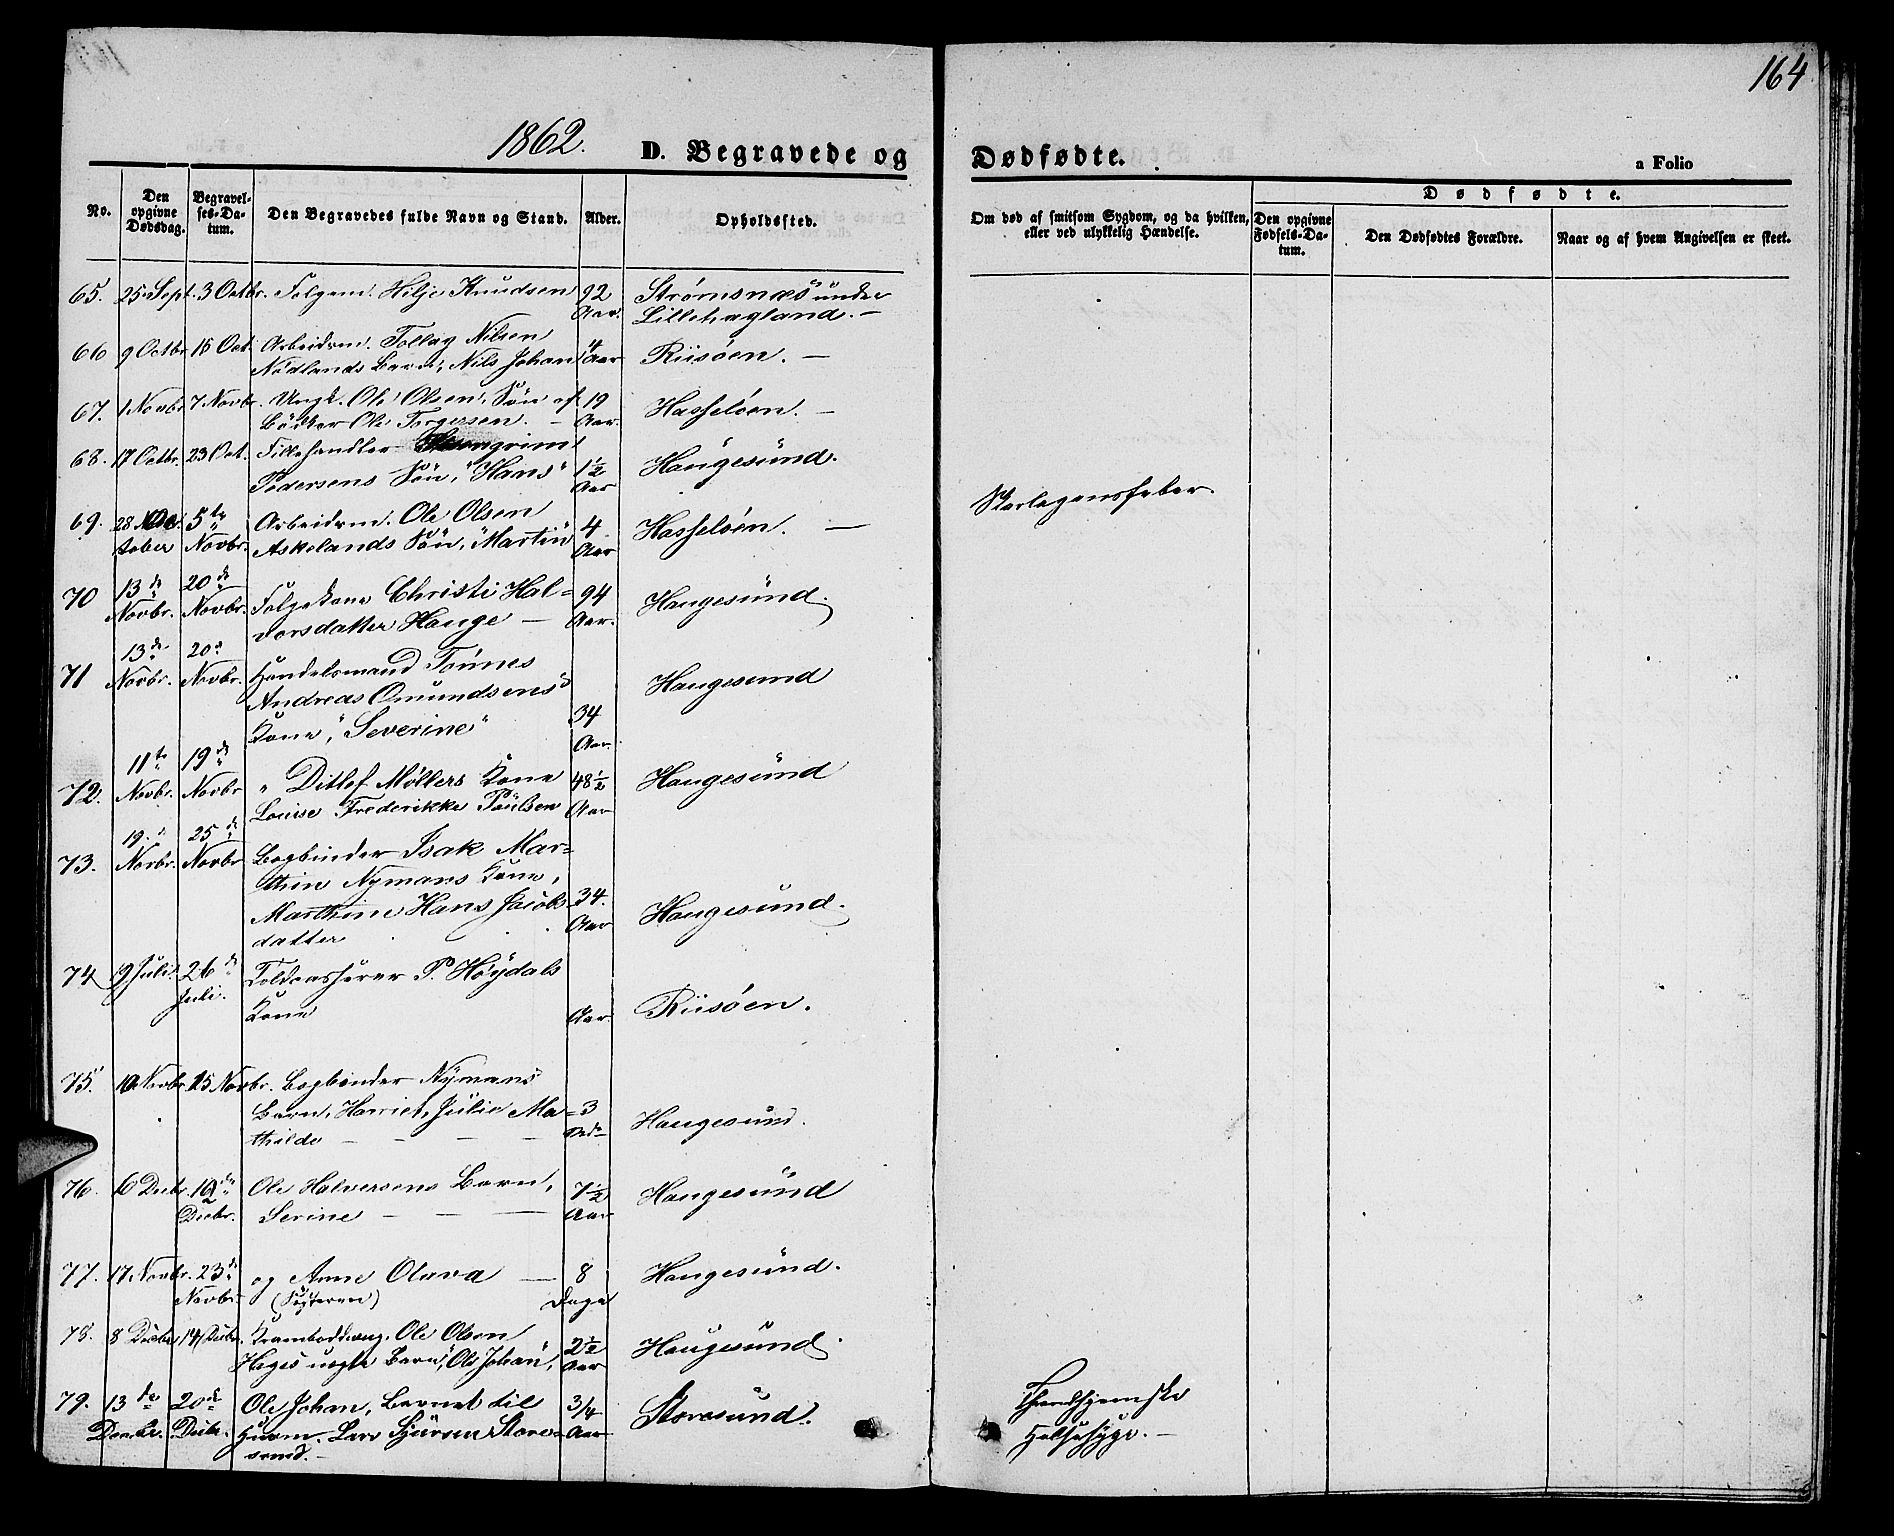 164
1862. D. Begravede og Dødfødte.
a Folio
No.
Den opgivne Dødsdag.
Begravel-
ses-Da-
tum.
Den Begravedes fulde Navn og Stand.
Alder.
Opholdssted.
Om død af smitsom Sygdom, og da hvilken,
eller ved ulykkelig Hændelse.
Dødfødte.
Den opgivne
Fødsels-Da-
tum.
Den Dødfødtes Forældre.
Naar og af hvem Angivelsen er skeet.
65. 25 Sept. 3 Octbr. Følgem. Hilje Knudsen 92 Strømsnæs under
Aar. Lillehagland. –
66 9 Octbr 15 Oct. Arbeidsm. Tollag Nilsen
Nødlands Barn, Nils Johan 4 Aar Riisøen. –
67. 1 Novbr 7 Novbr. Ungk. Ole Olsen, Søn af 19 Hasseløen. –
Bødker Ole Torgersen. – Aar.
68. 17 Octbr. 23 Oct. Fillehandler
Pedersens Søn, "Hans" 1½ Aar Haugesund.
69. 28 Oc 5te Arbeidsm. Ole Olsen 4 Hasseløen. – Skarlagensfeber.
tober Novbr. Askelands Søn, "Martin" Aar
70 13de 20de
Novbr. Novbr. Følgekone Christi Hal= 94 Haugesund.
vorsdatter Hauge – Aar.
71 13de 20de
Novbr. Novbr. Handelsmand Tønnes Haugesund
Andreas Omundsens
Kone, "Severine" 34 Aar.
72. 11te 19de
Novbr. Novbr " Ditlef Møllers Kone 48½ Haugesund
Louise Frederikke Paulsen Aar
73. 19de 25de
Novbr. Novbr Bogbinder Isak Mar=
thin Nymans Kone,
Marthine Hans Jacobs 34. Haugesund.
datter Aar
74 9 Juli. 26de Toldopsiører P. Høydals
Juli. Kone Aar. Riisøen.
75. 10 Novbr. 15 Novbr. Bogbinder Nymans
Barn, Harriet, Julie Ma= 3 Haugesund.
thilde – – –
76. 6 Decbr. Ole Halversens Barn, 7½ Haugesund
Decbr. Serine – – – Aar
77. 17 Novbr. 23de og Anne Olava – 8 Haugesund.
Novbr. (Systeren) Dage
78. 8 Decbr 14 Decbr. Ole Olsen 2½ Haugesund.
Barn, "Ole Johan", Aar
79. 13de 20de Ole Johan, Barnet til 3/4 Storesund.
Decbr. Decbr. Huusm. Lars Store= Aar
sund. – Halsesyge. –